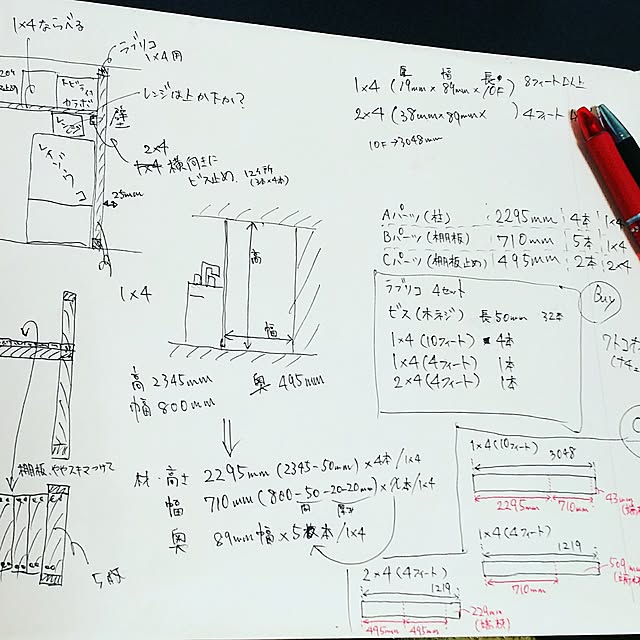 1×4ならべる
ラブリコ
1×4用
レンジは上か下か?
壁
レンジ
2×4
横向きに
ビス止め.12ヶ所
(3本×4本)
25mm
1×4
高
幅
高 2345mm
幅 800mm
奥 495mm
棚板、ややスキマつけて
奥 幅 長
1×4 (19mm × 89mm × 10F) 8フィート以上
2×4 (38mm×89mm× ) 4フィート
10F→3048mm
Aパーツ(柱) 2295mm 4本 1×4
Bパーツ(棚板) 710mm 5本 1×4
Cパーツ(棚板止め) 495mm 2本 2×4
ラブリコ 4セット
ビス(木ネジ) 長50mm 32本
1×4(10フィート) 4本
1×4(4フィート) 1本
2×4(4フィート) 1本
Buy
材・高さ 2295mm (2345-50mm)×4本/1×4
幅 710mm (800-50-20-20mm) 本/1×4
奥 89mm幅×5 本/1×4
1×4(10フィート)
3048
2295mm 710mm
43mm
1×4(4フィート)
1219
710mm
509mm
2×4(4フィート)
1219
495mm 495mm
229mm